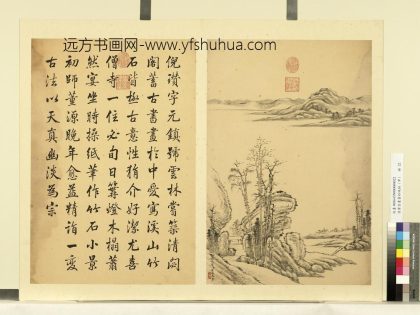 远方书画网-www.yfshuhua.com
倪瓚字元鎮號雲林嘗築清閟
閣蓄古書畫於中愛寫溪山竹
石皆極古意性狷介好潔尤喜
僧寺一住必旬日篝燈木榻蕭
然宴坐時操紙筆作竹石小景
初師董源晚年愈益精詣一變
古法以天真幽淡為宗